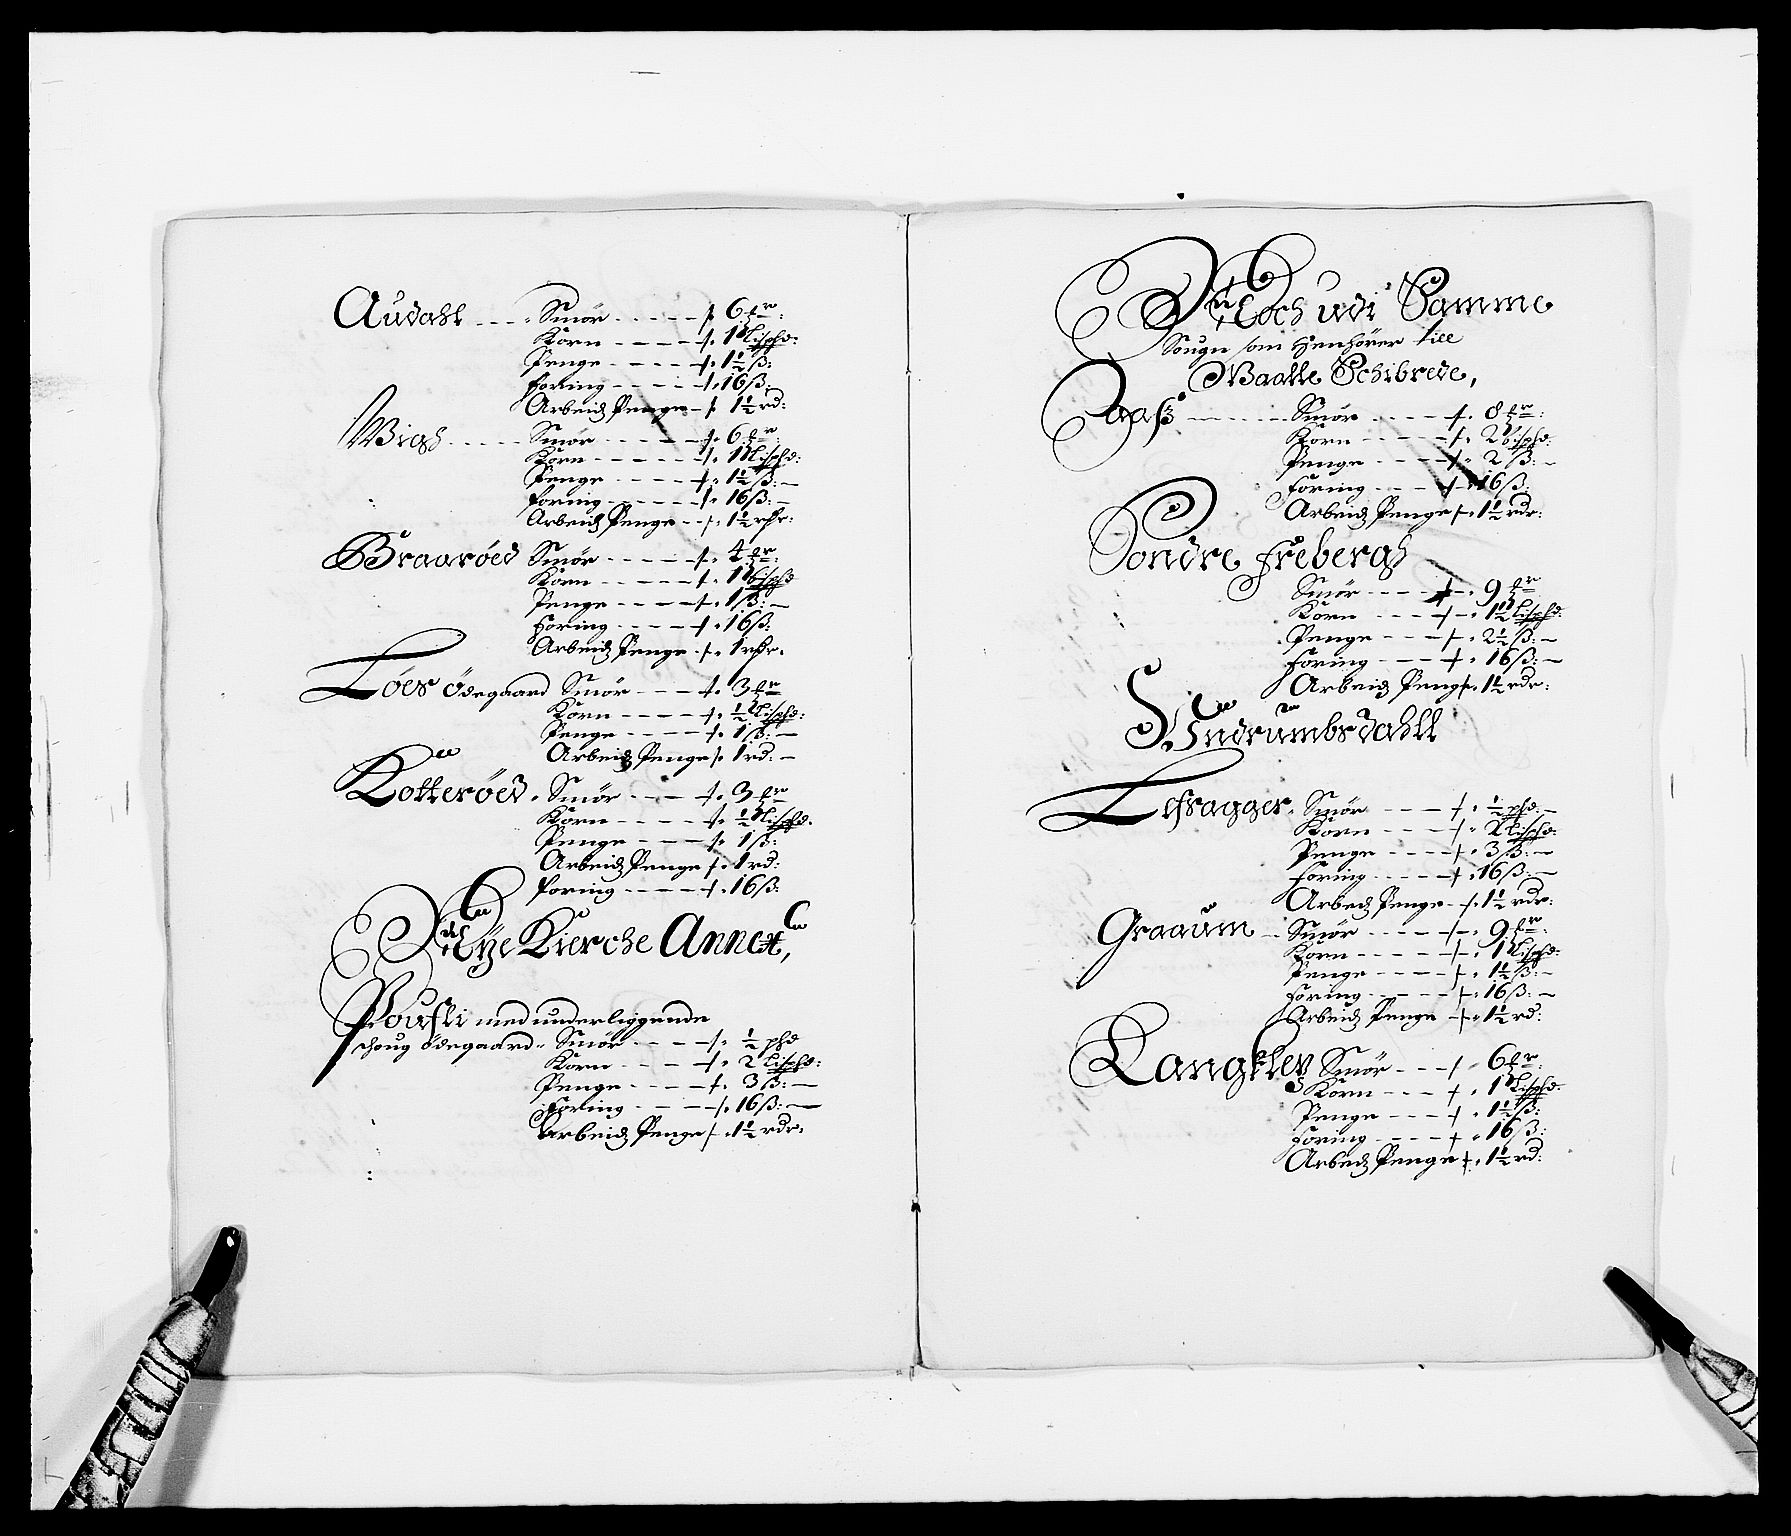 Audahl - - - - Smör - - - - - 6 ℔r:
Korn - - - - - 1 Lispd:
Penge - - - - 1½ ß:
foring - - - - 16 ß:
Arbeids Penge - 1½ rd:
Wigh - - - - Smör - - - - - 6 ℔r:
Korn - - - - - 1 Lispd:
Penge - - - - 1½ ß: -
foring - - - - 16 ß: -
Arbeids Penge - - 1½ rdr:
Braaröed Smör - - - - 4 ℔r:
Korn - - - - 1 Lispd
Penge - - - - 1 ß: -
Foring - - - - 16 ß:
Arbeids Penge - 1 rdr.
Löer Ödegaard Smör - - - 3 ℔r
Korn - - - - ½ Lispd:
Penge - - - - 1 ß: -
Arbeids Penge 1 rd: -
Kotteröed - Smör - - - 3 ℔r
Korn - - - - ½ Lispd.
Penge - - - 1 ß:
Arbeids Penge 1 rd:
foring - - - - 16 ß:
Nye Kierche Annex,
med underliggende
schoug ödegaard - Smör - - - - ½ pd
Korn - - - - 2 Lispd:
Penge - - - - 3 ß: -
Foring - - - - 16 ß: -
Arbeids Penge 1½ rdr:
Noch udi Samme
Sougn som Henhörer till
Waalle Schibrede,
Aaß - - - - Smör - - - - - 8 ℔r:
Korn - - - - 2 Lispd:
Penge - - - - 2 ß: -
Foring - - - - 16 ß:
Arbeids Penge 1½ rdr:
Söndre Frebergh
Smör - - - - 9 ℔r
Korn - - - - 1½ Lispd:
Penge - - - 2½ ß: -
Foring - - - 16 ß: -
Arbeids Penge 1½ rdr:
Sundrumbsdahll
Smör - - - ½ pd: -
Korn - - - 2 Lispd:
Penge - - - - 3 ß: -
Foring - - - - 16 ß: -
Arbeds Penge - 1½ rdr:
Graaum - - Smör - - - - - 9 ℔r:
Korn - - - - - 1 Lispd:
Penge - - - - 1½ ß: -
Foring - - - - 16 ß: -
Arbeids Penge - 1½ rd:
Langklev Smör - - - 6 ℔r:
Korn - - - 1 Lispd:
Penge - - - 1½ ß:
Foring - - - - 16 ß:
Arbeds Penge 1½ rd: